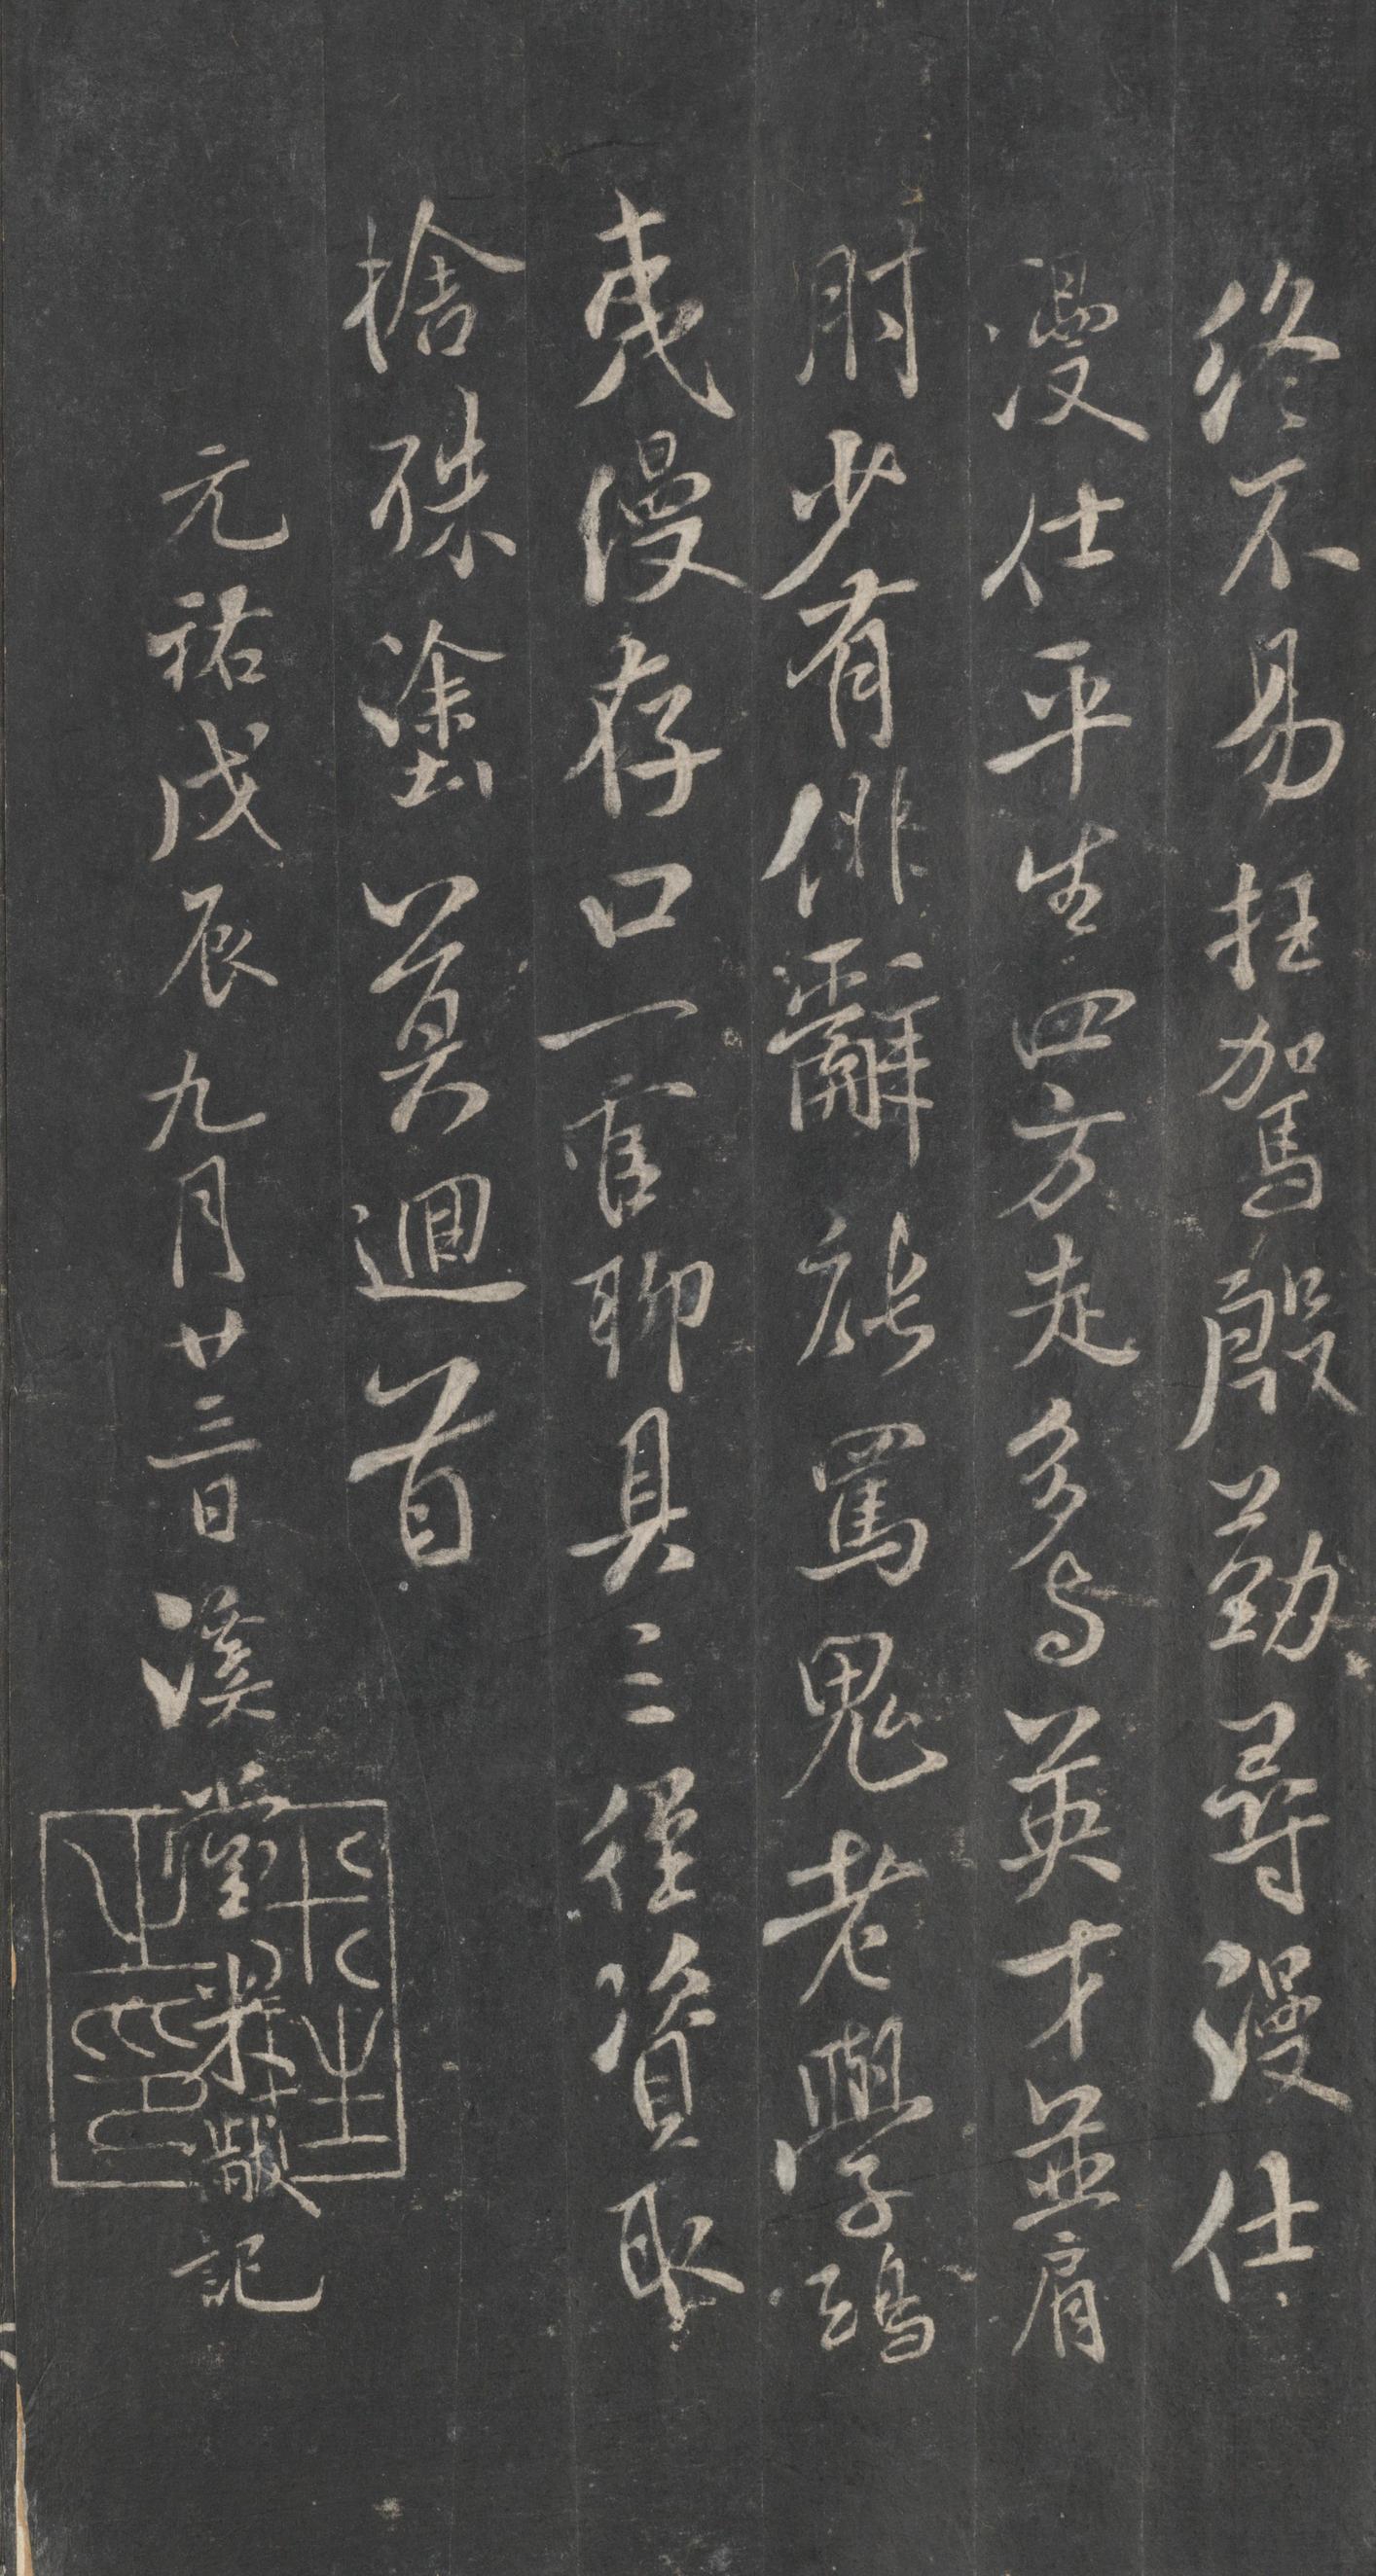 終不易枉駕殷勤尋漫仕
漫仕平生四方走多与英才並肩
肘少有俳辭能罵鬼老學鴟
夷漫存口一官聊具三徑資取
捨殊塗莫迴首
元祐戊辰九月廿三日溪堂米黻記
平生